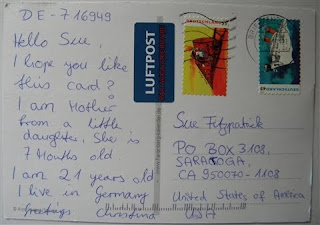 DE-716949
Hello Sue,
I hope you like
this card?
I am Mother
from a little
daughter, She is
7 Months old
I am 21 years old
I live in Germany
Greetings Christina
LUFTPOST
DEUTSCHLAND
Sue Fitzpatrick
PO BOX 3108,
SARATOGA,
CA 950070-1108
United States of America
USA